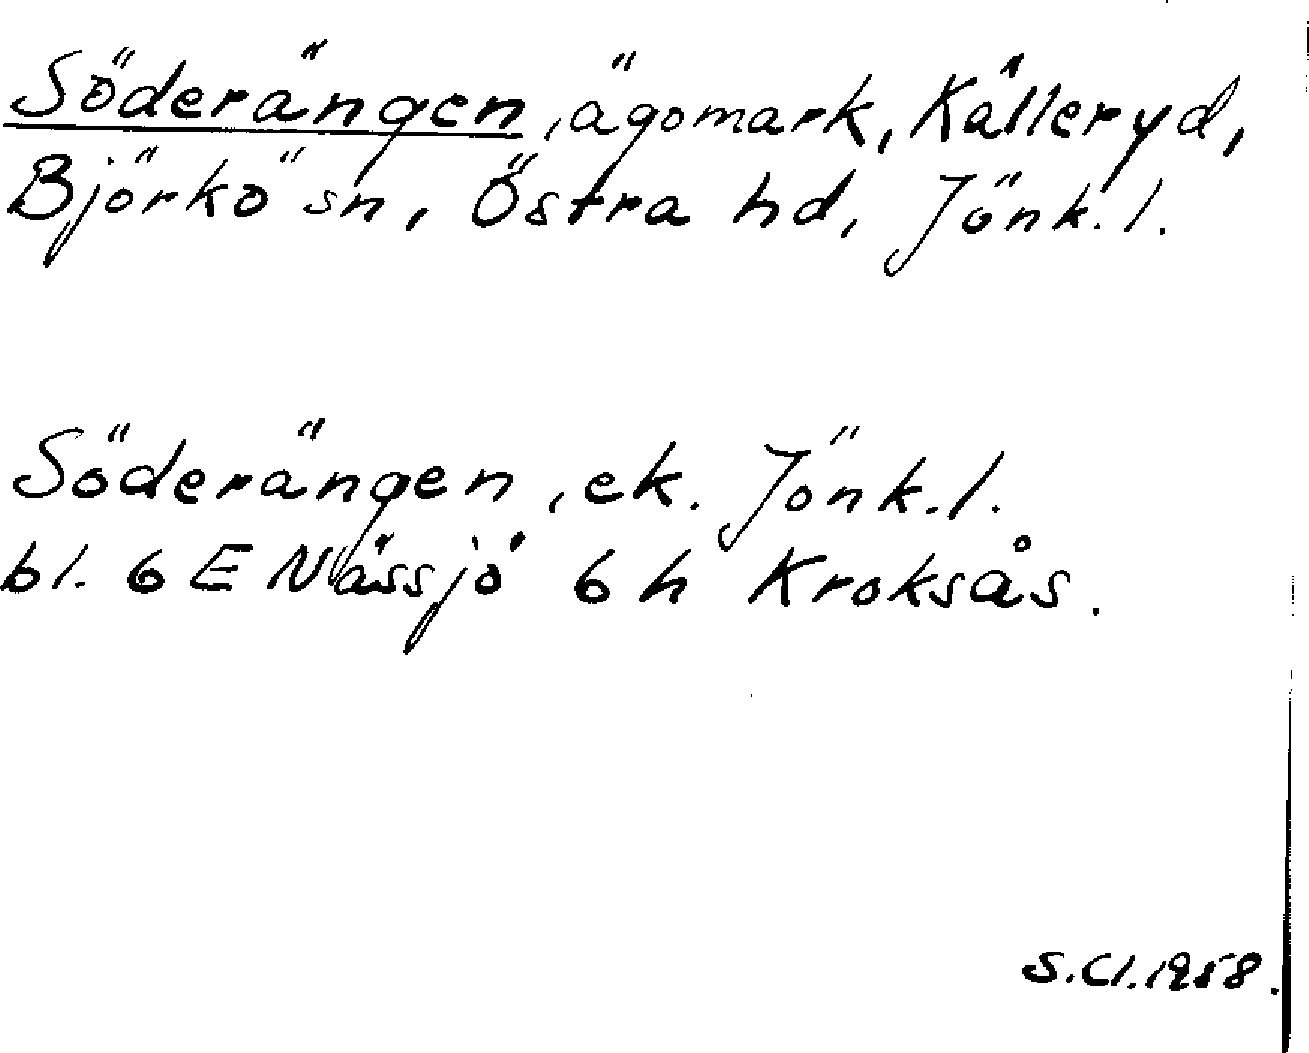 Söderängen, ägomark, Källeryd,
Björkö sn, Östra hd, Jönk. l.
Söderängen, ek. Jönk. l.
bl. 6 E Nässjö 6 h Kroksås.
S. Cl. 1958.